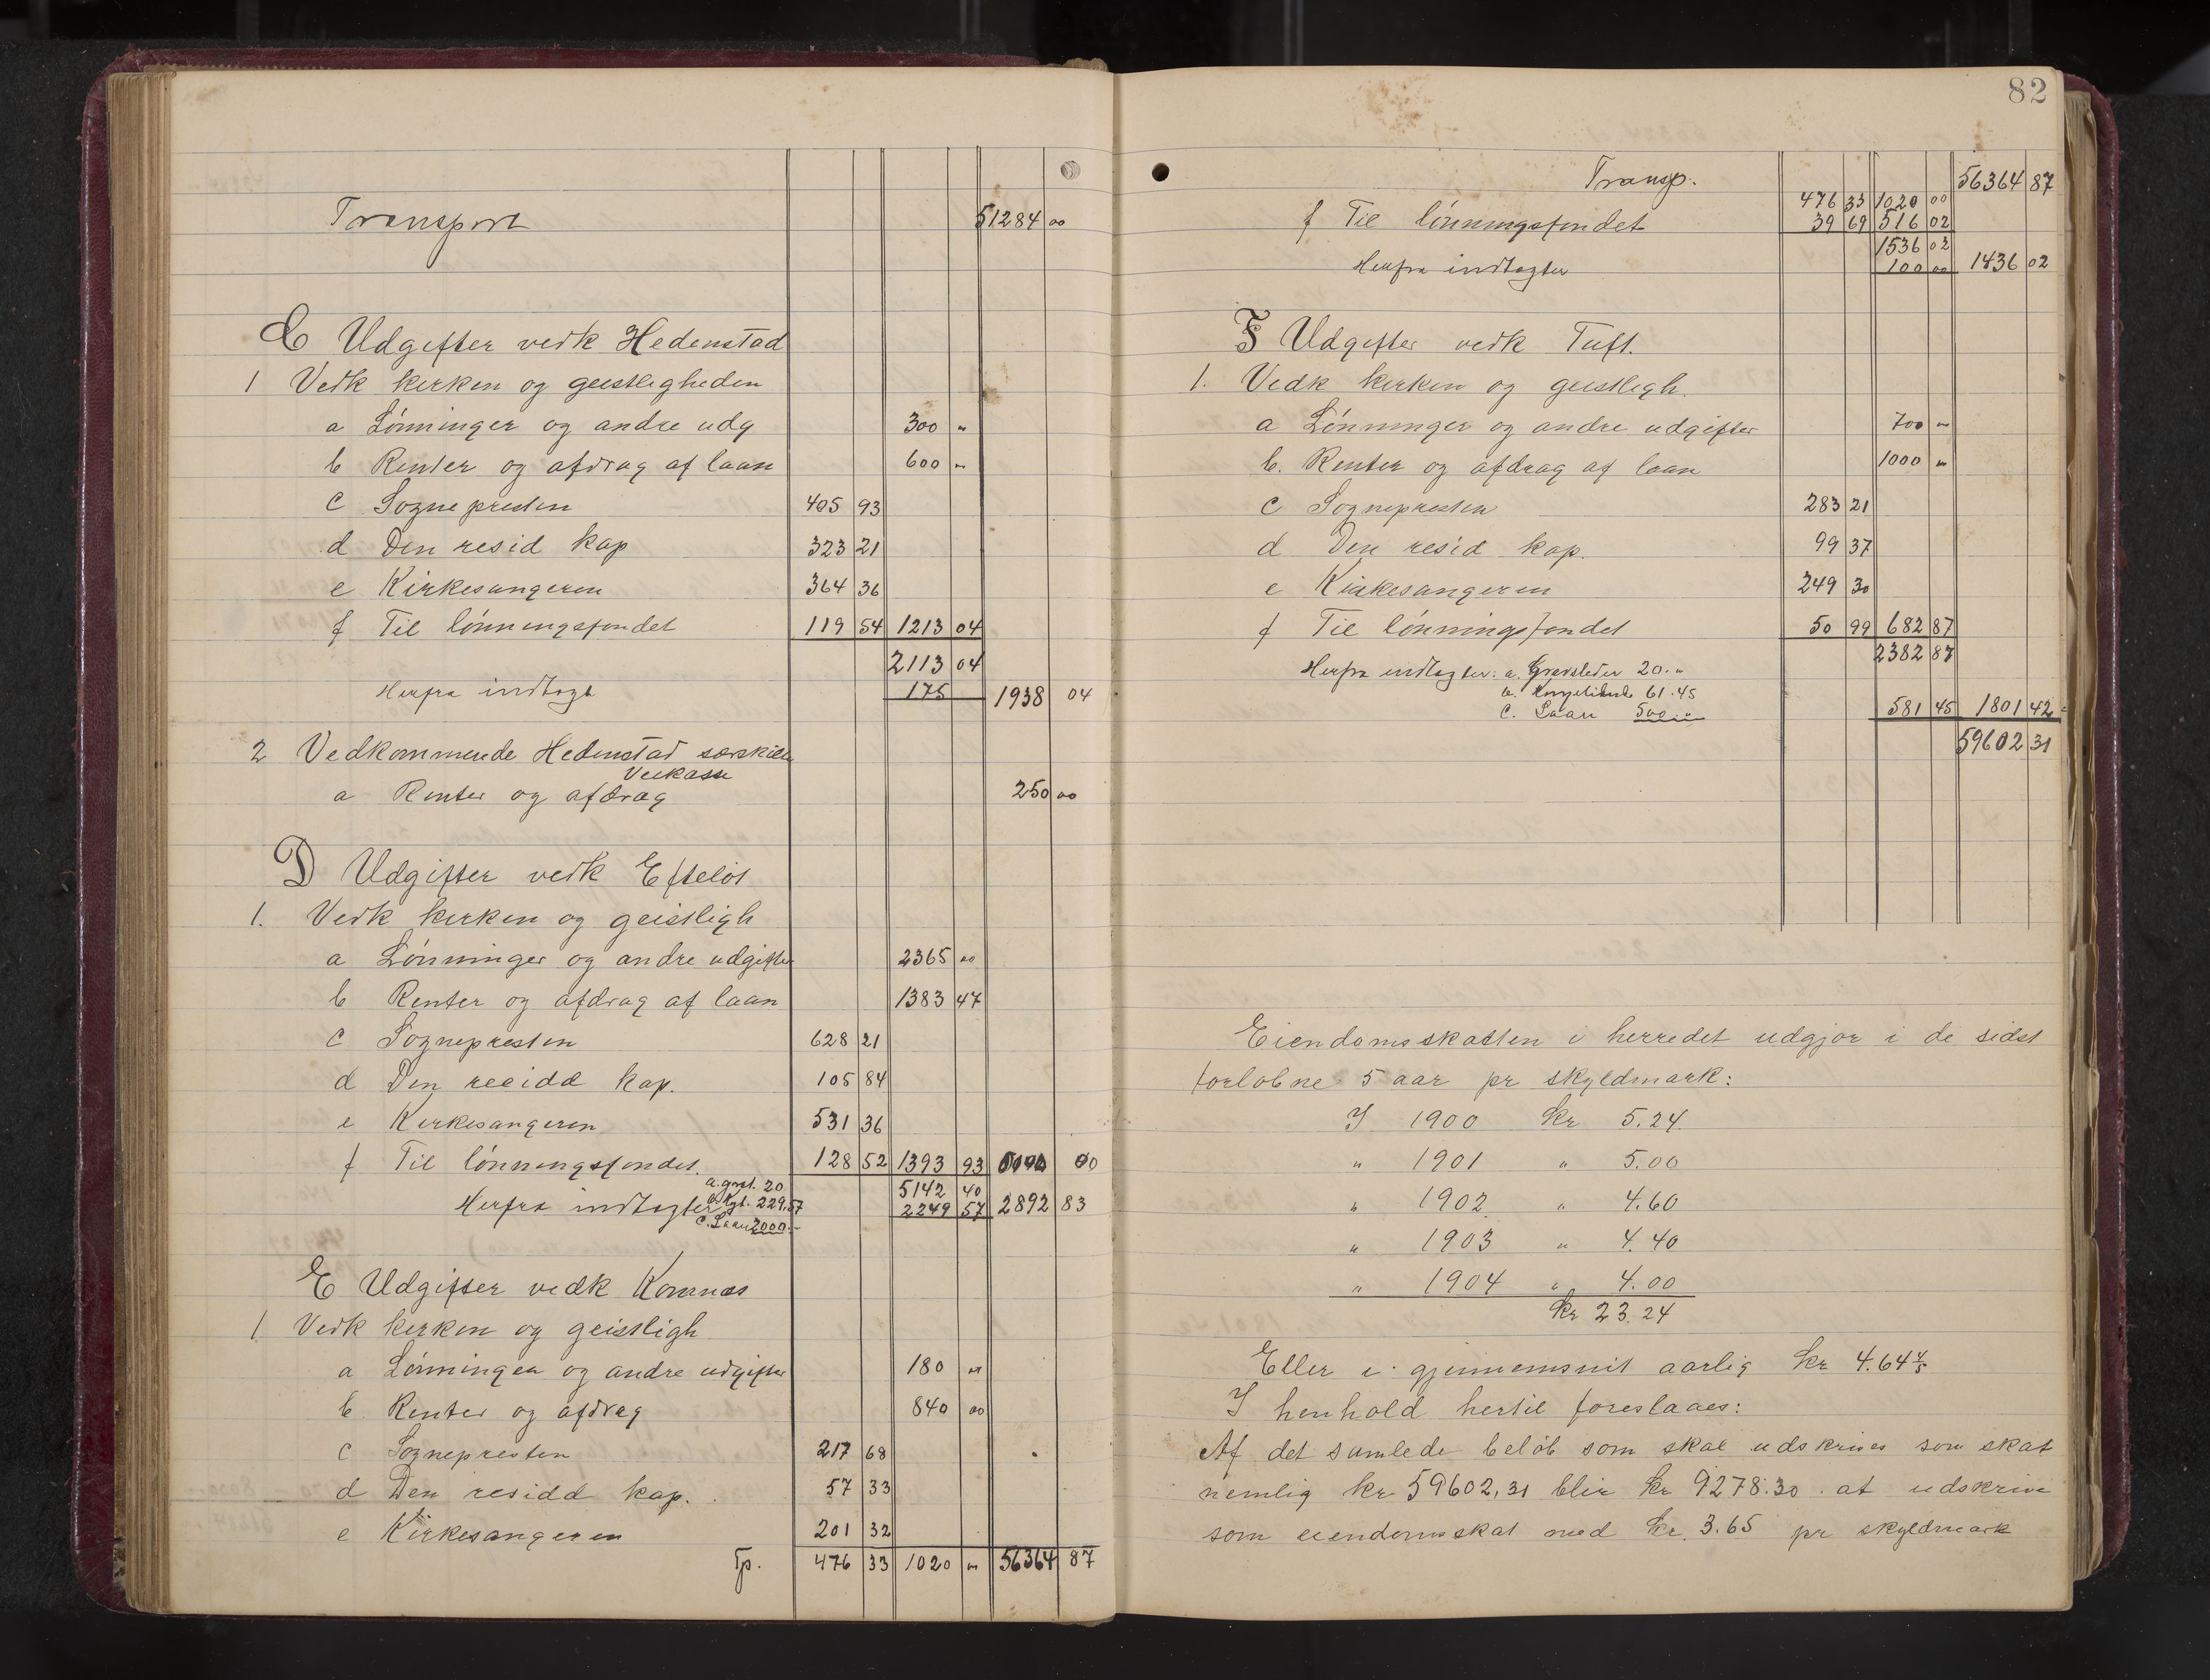 Transport 51284 00
C Udgifter vedk Hedenstad
1 Vedk kirken og geistligheden
a Lønninger og andre udg 300 "
b Renter og afdrag af laan 600 "
c Sognepresten 405 93
d Den resid kap 323 21
e Kirkesangeren 364 36
f Til lønningsfondet 119 54 1213 04
2113 04
Herfra indtægt 175 1938 04
2 Vedkommende Hedenstad særskilte
Veikasse
a Renter og afdrag 250 00
D Udgifter vedk Efteløt
1. Vedk kirken og geistligh
a Lønninger og andre udgifter 2365 00
b Renter og afdrag af laan 1383 47
c Sognepresten 628 21
d Den residd kap. 105 84
e Kirkesangeren 531 36
f Til lønningsfondet. 128 52 1393 93
a. gravst. 20 5142 40
Herfra indtægter b. Kgt. 229,57 2249 57 2892 83
c. Laan 2000.-
E Udgifter vedk Komnæs
1 Vedk kirken og geistligh
a Lønninger og andre udgifter 180 "
b Renter og afdrag 840 00
c Sognepresten 217 68
d Den residd kap. 57 33
e Kirkesangeren 201 32
Tp. 476 33 1020 " 56364 87
82
Transp. 476 33 1020 00 56364 87
f Til lønningsfondet 39 69 516 02
1536 02
Herfra indtægter 100 00 1436 02
F Udgifter vedk Tuft.
1. Vedk kirken og geistligh.
a Lønninger og andre udgifter 700 "
b. Renter og afdrag af laan 1000 "
c Sognepresten 283 21
d Den resid kap. 99 37
e Kirkesangeren 249 30
f Til lønningsfondet 50 99 682 87
2382 87
Herfra indtægter: a. Gravsteder 20."
b. Kongetiende 61.45
c. Laan 500." 581 45 1801 42
59602 31
Eiendomsskatten i herredet udgjør i de sidst
forløbne 5 aar pr skyldmark:
I 1900 kr 5.24
" 1901 " 5.00
" 1902 " 4.60
" 1903 " 4.40
" 1904 " 4.00
kr 23.24
Eller i gjennemsnit aarlig kr 4.64 4/5
I henhold hertil foreslaaes:
Af det samlede beløb som skal udskrives som skat
nemlig kr 59602,31 blir kr 9278.30 at udskrive
som eiendomsskat med kr. 3.65 pr skyldmark